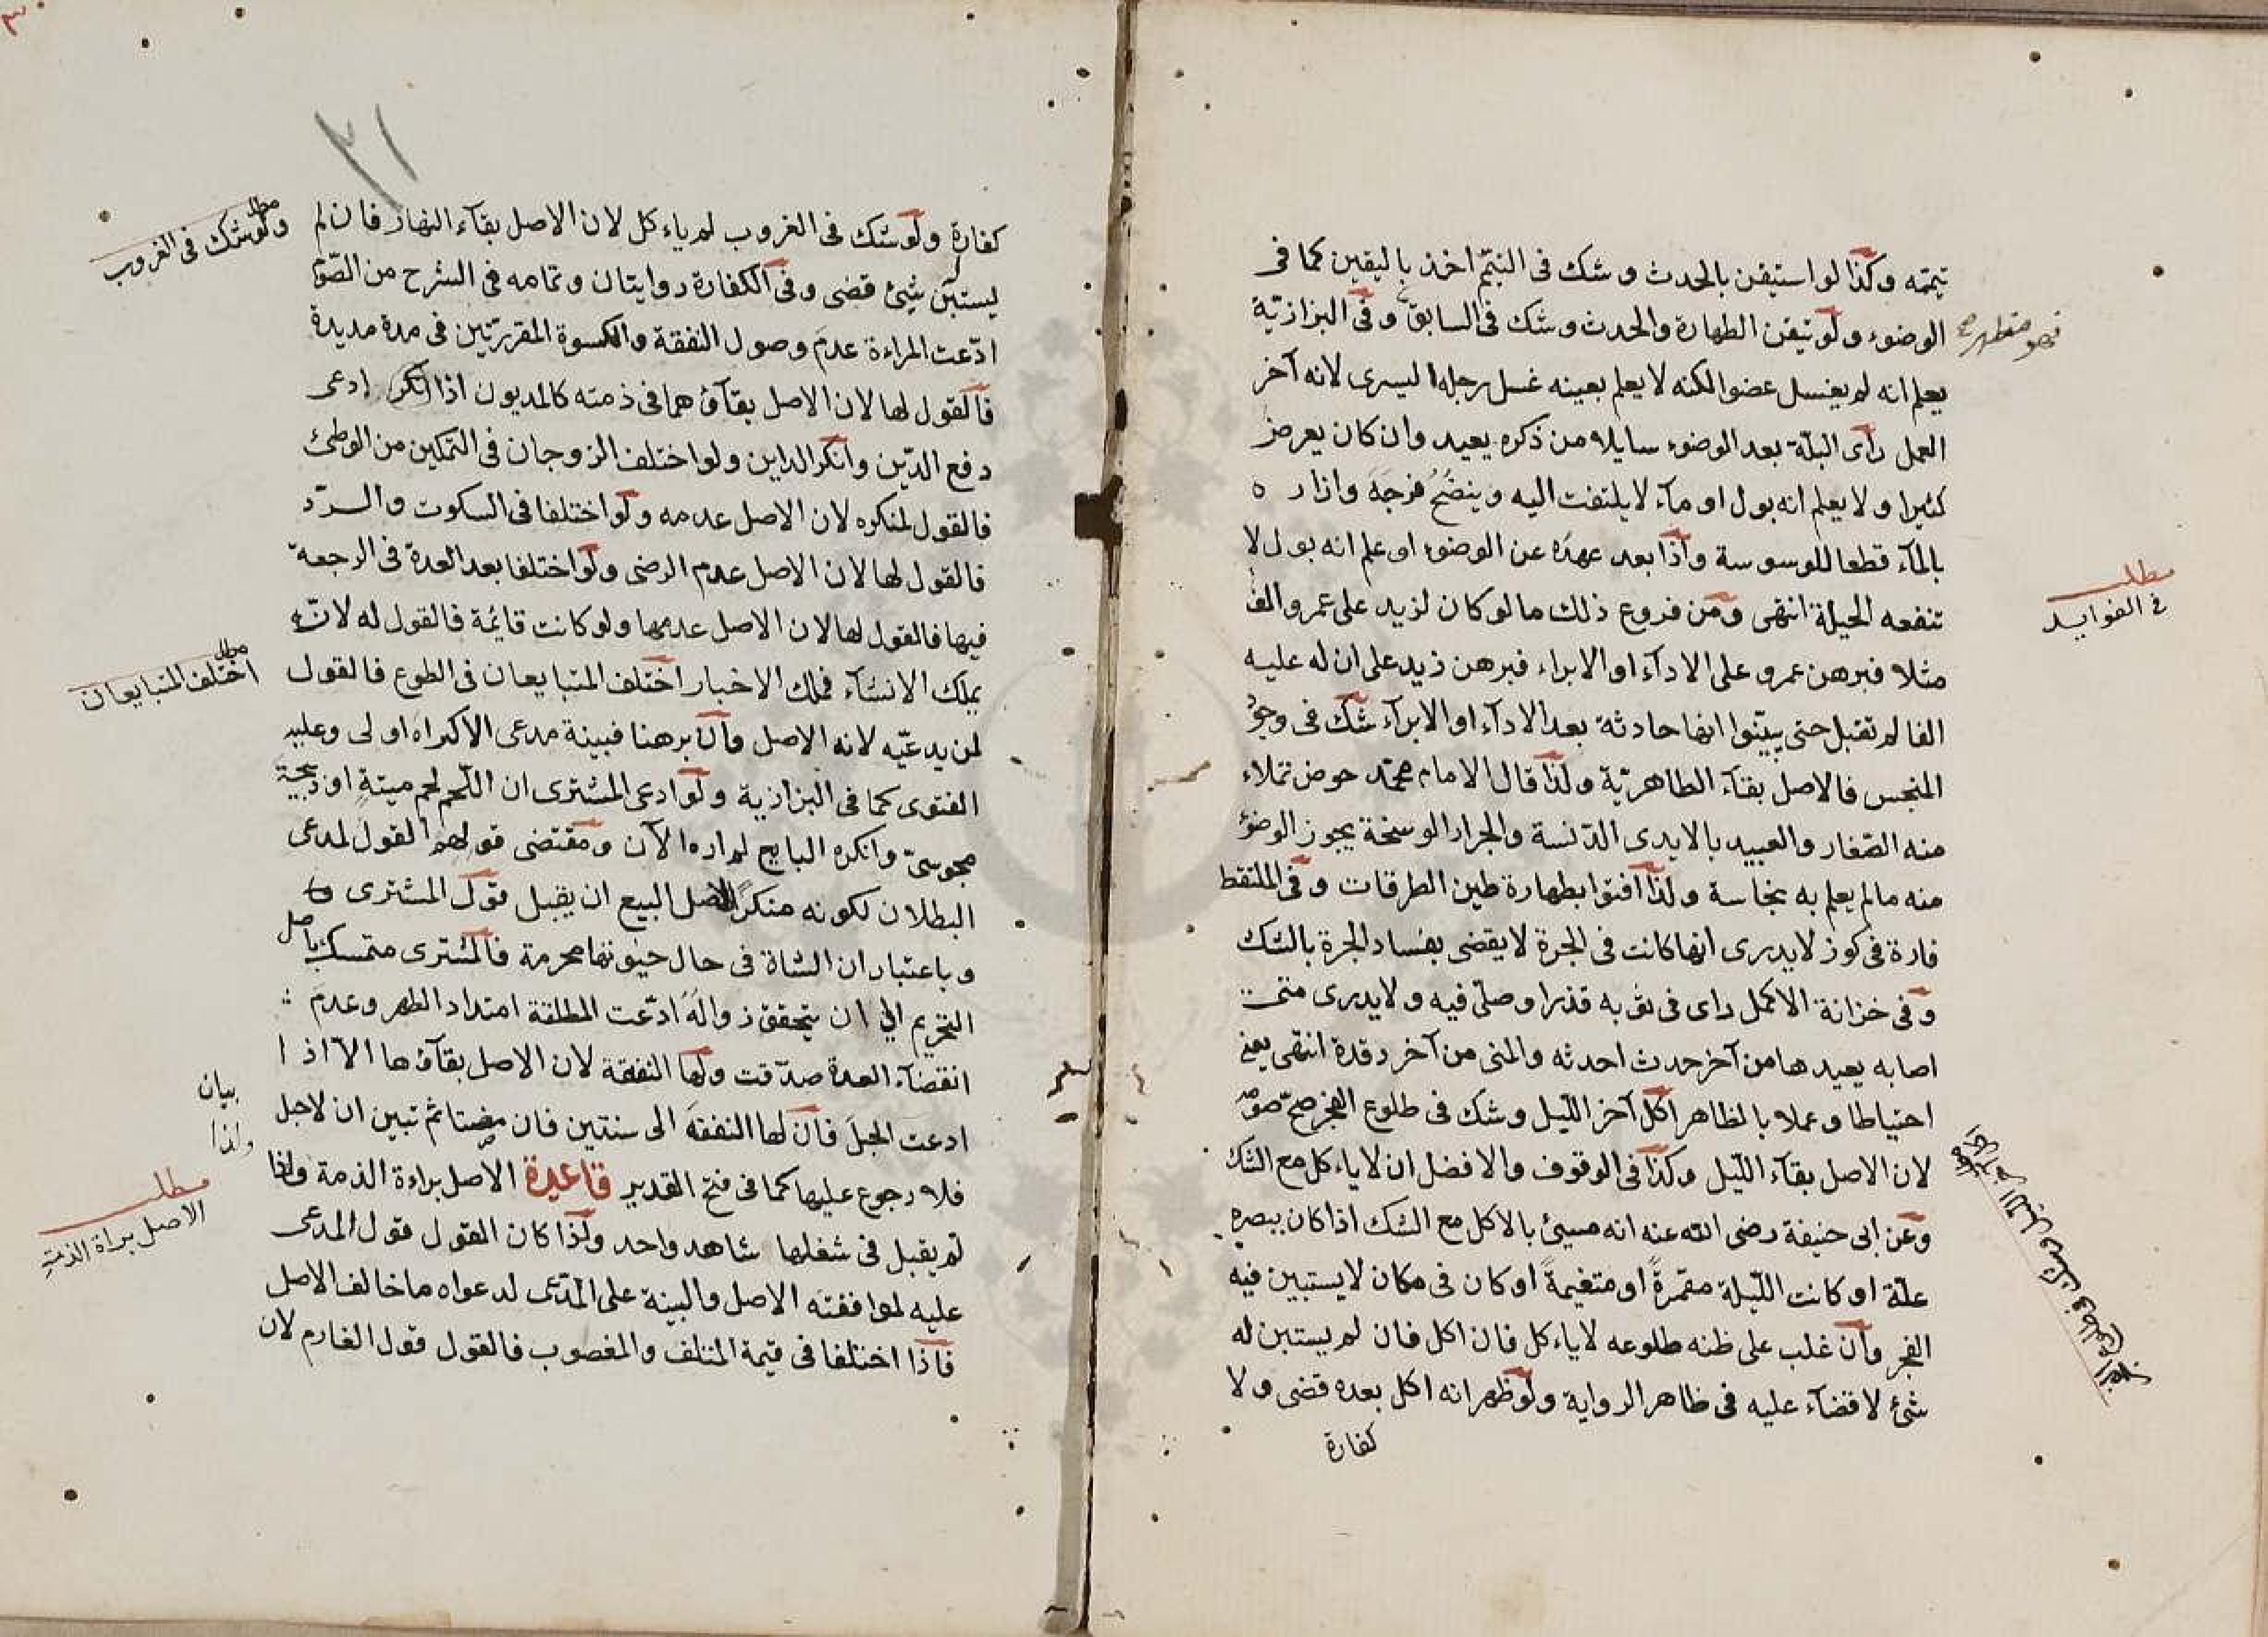 تيممه وكذا لو استيقن بالحدث وشك فى التيمم اخذ باليقين كما فى
الوضوء ولو تيقن الطهارة والحدث وشك فى السابق وفى البزازية
فهو متطهر صح
يعلم انه لم يغسل عضوا لكنه لا يعلم بعينه غسل رجله اليسرى لانه آخر
العمل راى البلة بعد الوضوء سايلا من ذكره يعيد وان كان يعرض
كثيرا ولا يعلم انه بول او مآء لا يلتفت اليه وينضح فرجه وازاره
بالمآء قطعا للوسوسة واذا بعد عهده عن الوضوء او علم انه بول لا
تنفعه الحيلة انتهى ومن فروع ذلك ما لو كان لزيد على عمرو الف
مطلب
فى الفوايد
مثلا فبرهن عمرو على الادآء او الابراء فبرهن زيد على ان له عليه
الفا لم تقبل حتى يبيّنوا انها حادثة بعد الادآء او الابرآء شك فى وجود
المنجس فالاصل بقآء الطاهريّة ولذا قال الامام محمّد حوض تملاء
منه الصّغار والعبيد بالايدى الدّنسة والجرار الوسخة يجوز الوضوء
منه مالم يعلم به نجاسة ولذا افتوا بطهارة طين الطرقات وفى الملتقط
فارة فى كوز لا يدرى انها كانت فى الجرة لا يقضى بفساد الجرة بالشك
وفى خزانة الاكمل راى فى ثوبه قذرا وصلّى فيه ولا يدرى متى
اصابه يعيدها من آخر حدث احدثه والمنى من آخر رقدة انتهى يعنى
احتياطا وعملا بالظاهر اكل آخر اللّيل وشك فى طلوع الفجر صحّ صومه
لان الاصل بقآء اللّيل وكذا فى الوقوف والافضل ان لا ياءكل مع الشك
وعن ابى حنيفة رضى الله عنه انه مسيئ بالاكل مع الشك اذا كان ببصره
علّة او كانت اللّيلة مقمرةً او متغيمةً او كان فى مكان لا يستبين فيه
الفجر وان غلب على ظنه طلوعه لا ياءكل فان اكل فان لم يستبن له
شئ لا قضآء عليه فى ظاهر الرواية ولو ظهر انه اكل بعده قضى ولا
كفارة
آخر الليل وشك فى طلوع الفجر
٣
٢١
كفارة ولو شك فى الغروب لم ياءكل لان الاصل بقآء النهار فان لم
مطلب
ولو شك فى الغروب
ليستبن شيئ قضى وفى الكفارة روايتان وتمامه فى الشرح من الصّوم
ادّعت المراءة عدم وصول النفقة والكسوة المقررتين فى مدة مديدة
فالقول لها لان الاصل بقآؤهما فى ذمته كالمديون اذا انكر ادعى
دفع الدّين وانكر الداين ولو اختلف الزوجان فى التمكين من الوطئ
فالقول لمنكره لان الاصل عدمه ولو اختلفا فى السكوت والرّد
فالقول لها لان الاصل عدم الرضى ولو اختلفا بعد العدة فى الرجعة
فيها فالقول لها لان الاصل عدمها ولو كانت قايمة فالقول له لانّه
يملك الانشآء فملك الاخبار اختلف المتبايعان فى الطوع فالقول
مطلب
اختلف المتبايعان
لمن يدعيّه لانه الاصل وان برهنا فبينة مدعى الاكراه اولى وعليه
الفتوى كما فى البزازية ولو ادعى المشترى ان اللّحم لحم ميتةٍ او ذبيحة
مجوسىّ وانكره البايع لم اره الآن ومقتضى قولهم القول لمدعى
البطلان لكونه منكرًا لاصل البيع ان يقبل قول المشترى
وباعتبار ان الشاة فى حال حيوتها محرمة فالمشترى متمسك باصل
التحريم الى ان يتحقق زواله ادّعت المطلقة امتداد الطهر وعدم
انقضآء العدة صدّقت ولها النفقة لان الاصل بقآؤها الا اذا
ادعت الحبل فان لها النفقه الى سنتين فان مضتا ثم تبين ان لا حبل
بيان
واذا
فلا رجوع عليها كما فى فتح القدير قاعدة الاصل براءة الذمة ولذا
مطلب
الاصل براة الذمة
لم يقبل فى شغلها شاهد واحد ولذا كان القول قول المدعى
عليه لموافقته الاصل والبينة على المدّعى لدعواه ما خالف الاصل
فاذا اختلفا فى قيمة المتلف والمغصوب فالقول قول الغارم لان